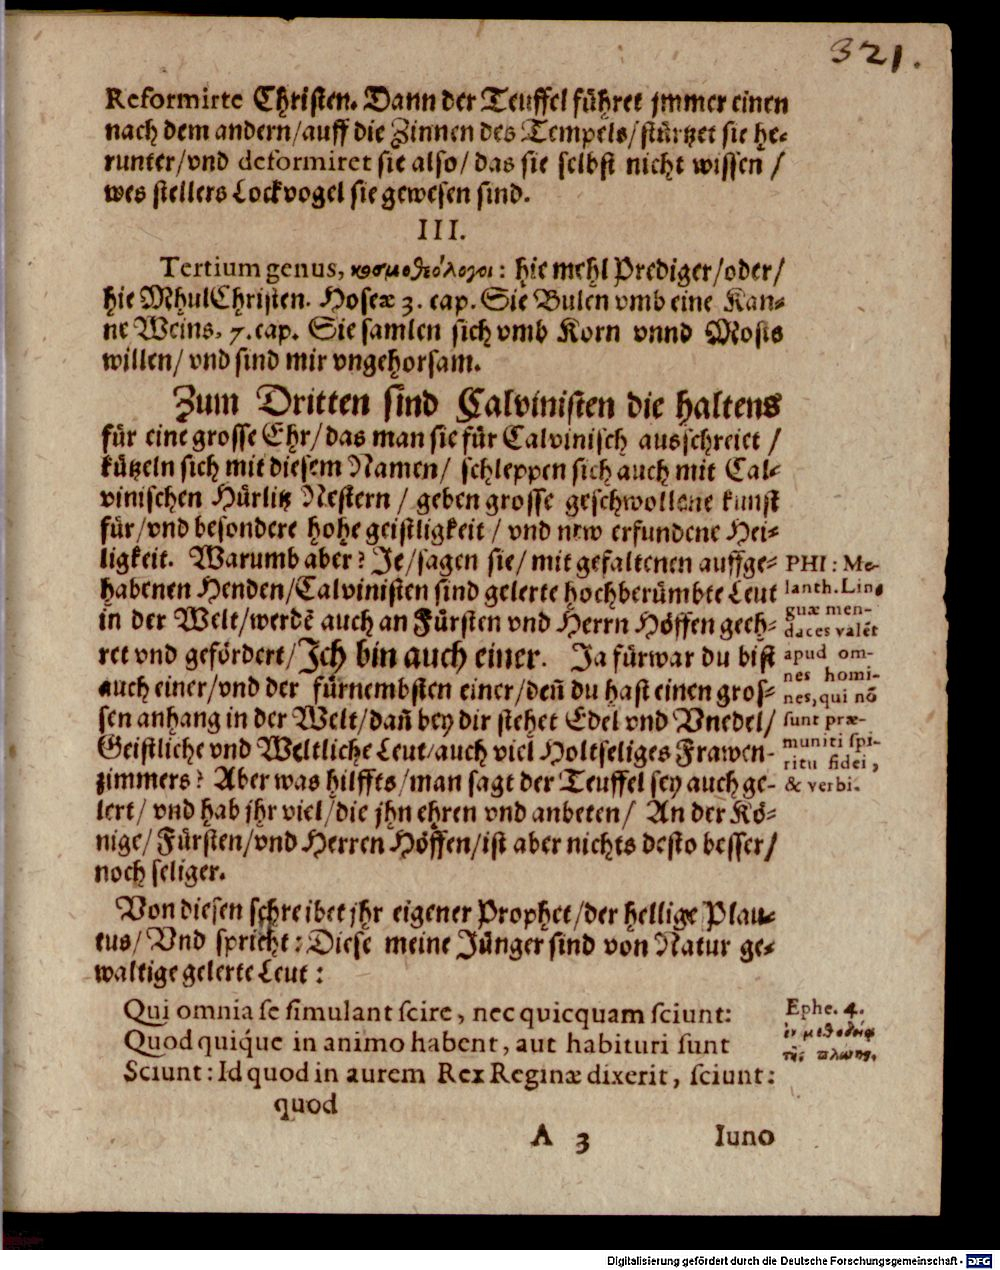 321.
Reformirte Christen. Dann der Teuffel führet jmmer einen
nach dem andern/auff die Zinnen des Tempels/stürtzet sie he-
runter/vnd deformiret sie also/das sie selbst nicht wissen/
wes stellers Lockvogel sie gewesen sind.
III.
Tertium genus, κοσμοθεόλογοι: hie mehl Prediger/oder/
hie MhulChristen. Hoseæ 3. cap. Sie Bulen vmb eine Kan-
ne Weins, 7. cap. Sie samlen sich vmb Korn vnnd Mosts
willen/vnd sind mir vngehorsam.
Zum Dritten sind Calvinisten die haltens
für eine grosse Ehr/das man sie für Calvinisch ausschreiet/
kützeln sich mit diesem Namen/schleppen sich auch mit Cal-
vinischen Hürlitz Nestern/geben grosse geschwollene kunst
für/vnd besondere hohe geistligkeit/vnd new erfundene Hei-
ligkeit. Warumb aber? Je/sagen sie/mit gefaltenen auffge-
habenen Henden/Calvinisten sind gelerte hochberümbte Leut
in der Welt/werdē auch an Fürsten vnd Herrn Höffen geeh-
ret vnd gefördert/Ich bin auch einer. Ja fürwar du bist
auch einer/vnd der fürnembsten einer/deñ du hast einen gros-
sen anhang in der Welt/dañ bey dir stehet Edel vnd Vnedel/
Geistliche vnd Weltliche Leut/auch viel Holtseliges Frawen-
zimmers? Aber was hilffts/man sagt der Teuffel sey auch ge-
lert/vnd hab jhr viel/die jhn ehren vnd anbeten/An der Kö-
nige/Fürsten/vnd Herren Höffen/ist aber nichts desto besser/
noch seliger.
PHI: Me-
lanth. Lin-
guæ men-
daces valēt
apud om-
nes homi-
nes, qui nō
sunt præ-
muniti spi-
ritu fidei,
& verbi.
Von diesen schreibet jhr eigener Prophet/der hellige Plau-
tus/Vnd spricht: Diese meine Jünger sind von Natur ge-
waltige gelerte Leut:
Qui omnia se simulant scire, nec quicquam sciunt:
Quod quiq́ue in animo habent, aut habituri sunt
Sciunt: Id quod in aurem Rex Reginæ dixerit, sciunt:
quod
Ephe. 4.
ἐν μεθοδείᾳ
τῆς πλάνης.
A 3
Iuno
Digitalisierung gefördert durch die Deutsche Forschungsgemeinschaft - DFG